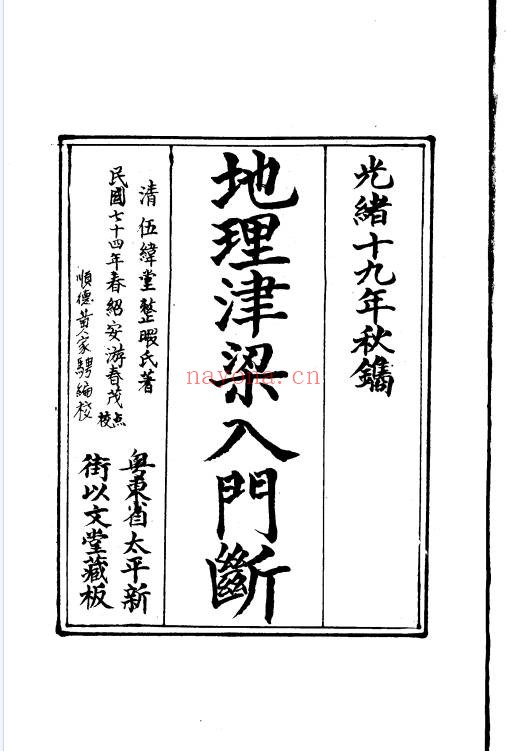 光緒十九年秋鐫
地理津梁入門斷
清 伍緯堂整暇氏著
民國七十四年春紹安游春茂点校
順德黃家騁編校
粵東省太平新
街以文堂藏板
nayona.cn